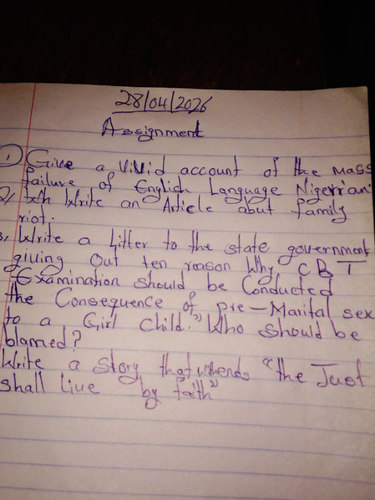 28/04/2026
Assignment
1) Give a vivid account of the mass
failure of English Language Nigerrian
2, Write an Article abut family
riot.
3, Write a litter to the state government
giving out ten reason Why CBT
Examination should be Conducted
the Consequence of pre-Marital sex
to a Girl child. Who should be
blamed?
Write a story that ends "the Just
shall live by faith"